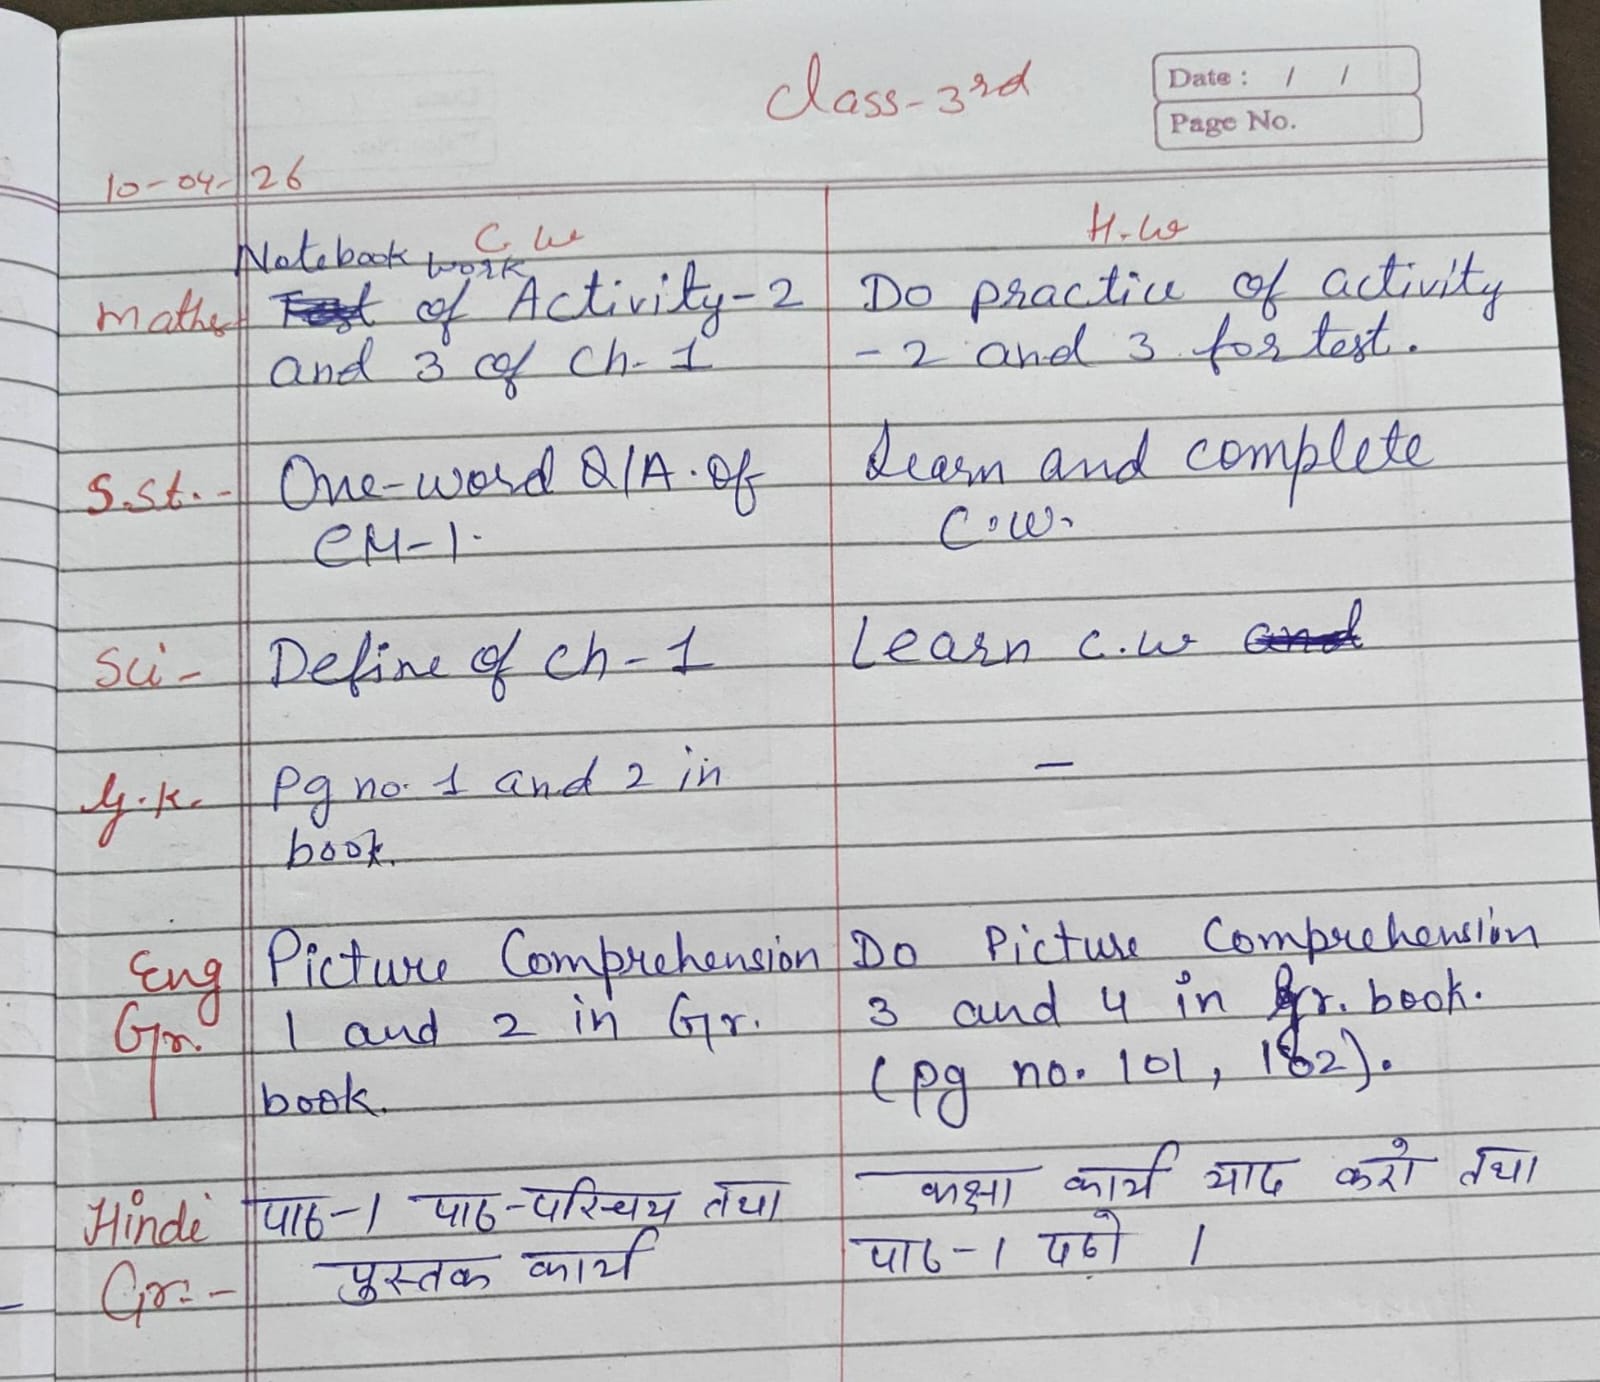 Class-3rd
Date : / /
Page No.
10-04-26
C.W H.W
Notebook work
Maths of Activity-2 Do practice of activity
and 3 of Ch-1 -2 and 3 for test.
S.St.- One-word Q/A. of Learn and complete
CH-1. C.W.
Sci- Define of Ch-1 Learn C.W
G.K. Pg no. 1 and 2 in -
book.
Eng Picture Comprehension Do Picture Comprehension
Gr. 1 and 2 in Gr. 3 and 4 in Gr. book.
book. (pg no. 101, 102).
Hindi पाठ-1 पाठ-परिचय तथा कक्षा कार्य याद करो तथा
Gr.- पुस्तक कार्य पाठ-1 पढो ।